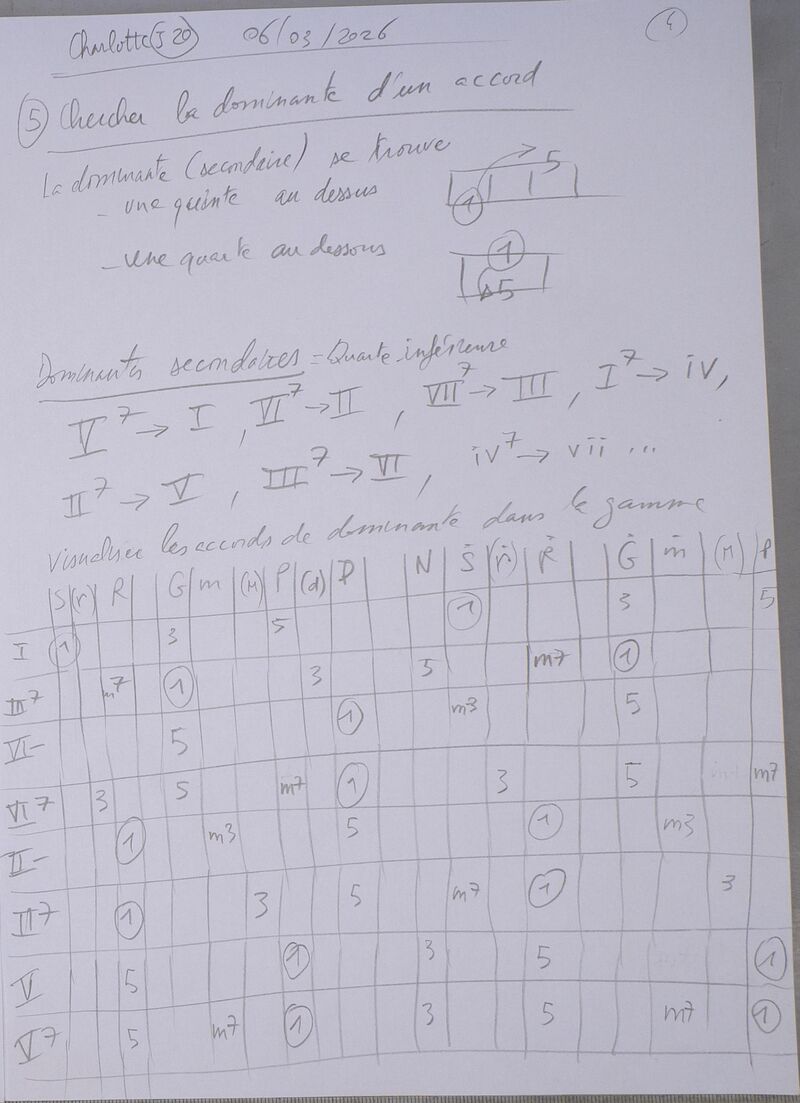 Charlotte (J 20) 06/03/2026 4
5 Chercher la dominante d'un accord
La dominante (secondaire) se trouve
- une quinte au dessus
1 5
- une quarte au dessous
1
5
Dominantes secondaires = Quarte inférieure
V7 → I, VI7 → II, VII7 → III, I7 → iv,
II7 → V, III7 → VI, iv7 → vii ...
Visualiser les accords de dominante dans la gamme
S (r) R G m (M) P (d) D N Ṡ (ṙ) Ṙ Ġ ṁ (M) P
I 1 3 5 1 3 5
III7 m7 1 3 5 m7 1
VI- 5 1 m3 5
VI7 3 5 m7 1 3 5 m7
II- 1 m3 5 1 m3
II7 1 3 5 m7 1 3
V 5 1 3 5 1
V7 5 m7 1 3 5 m7 1